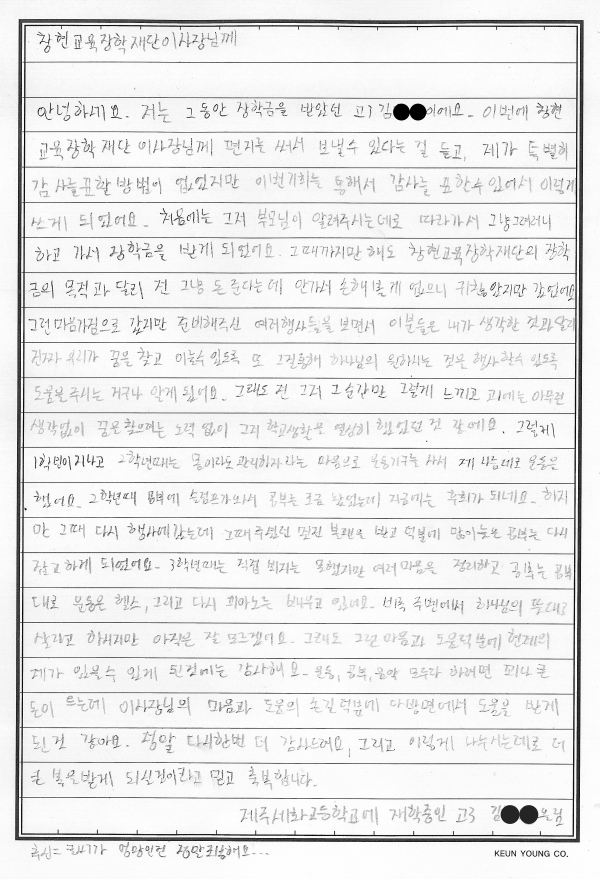 창현교육장학재단이사장님께
안녕하세요. 저는 그동안 장학금을 받았던 고3 김●●이에요. 이번에 창현
교육장학 재단 이사장님께 편지를 써서 보낼수 있다는 걸 듣고, 제가 특별히
감사를표할 방법이 없었지만 이번기회를 통해서 감사를 표할수있어서 이렇게
쓰게 되었어요. 처음에는 그저 부모님이 알려주시는데로 따라가서 그냥그러려니
하고 가서 장학금을 받게 되었어요. 그때까지만 해도 창현교육장학재단의 장학
금의 목적과 달리 전 그냥 돈 준다는데 안가서 손해볼게 없으니 귀찮았지만 갔었어요
그런마음가짐으로 갔지만 준비해주신 여러행사들을 보면서 이분들은 내가 생각한 것과달리
진짜 우리가 꿈을 찾고 이룰수있도록 또 그걸통해 하나님의 원하시는 것을 행사할수 있도록
도움을 주시는 거구나 알게 됬어요. 그래도 전 그저 그순간만 그렇게 느끼고 뒤에는 아무런
생각없이 꿈을 찾으려는 노력 없이 그저 학교생활을 열심히 했었던 것 같에요. 그렇게
1학년이지나고 2학년때는 몸이라도관리하자라는 마음으로 운동기구를 사서 제 나름대로 운동은
했어요. 2학년때 공부에 슬럼프가와서 공부를 조금 놨었는데 지금에는 후회가 되네요. 하지
만 그때 다시 행사에갔는데 그때주셨던 멋진 볼펜을 받고 덕분에 많이늦은 공부는 다시
잡고 하게 되었어요. 3학년때는 직접 뵈지는 못했지만 여러마음을 정리하고 공부는 공부
대로 운동은 헬스, 그리고 다시 피아노는 배우고 있어요. 비록 주변에서 하나님의 뜻대로
살라고 하시지만 아직은 잘 모르겠어요. 그래도 그런 마음과 도움덕분에 현재의
제가 있을수 있게 된것에는 감사해요. 운동, 공부, 음악 모두다 하려면 꽤나 큰
돈이 드는데 이사장님의 마음과 도움의 손길 덕분에 다방면에서 도움을 받게
된것 같아요. 정말 다시한번 더 감사드려요, 그리고 이렇게 나누시는데로 더
큰 복을받게 되실것이라고 믿고 축복합니다.
제주세화고등학교에 재학중인 고3 김●●올림
추신: 글씨가 엉망인건 정말죄송해요...
KEUN YOUNG CO.